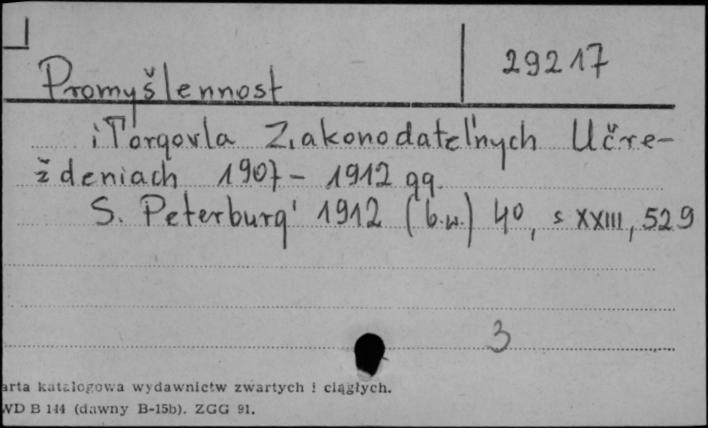 29217
Promyšlennost
i Torgovla Zakonodatel'nych Učre-
ždeniach 1907 - 1912 gg.
S. Peterburg' 1912 (b.w.) 4⁰, s XXIII, 529
3
arta katalogowa wydawnictw zwartych i ciągłych.
WD B 144 (dawny B-15b). ZGG 91.